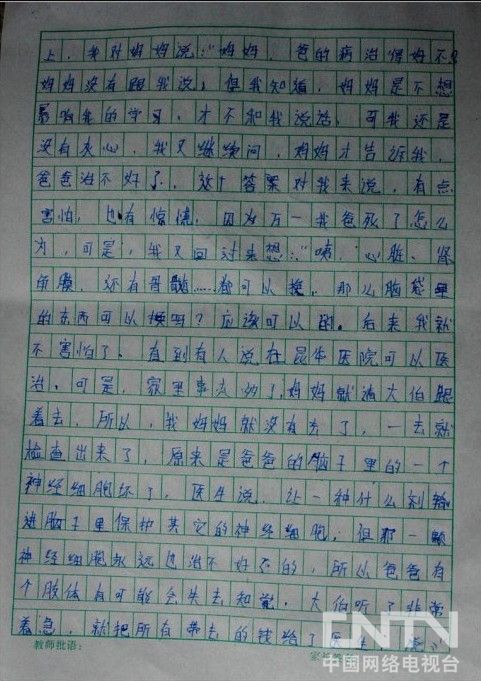 上，我对妈妈说："妈妈，爸的病治得好不？
妈妈没有跟我说，但我知道，妈妈是不想
影响我的学习，才不和我说话，可我还是
没有灰心，我又继续问，妈妈才告诉我，
爸爸治不好了，这个答案对我来说，有点
害怕，也有惊慌，因为万一我爸死了怎么
办，可是，我又回过来想："咦，心脏、肾
角膜、还有骨髓……都可以换，那么脑袋里
的东西可以换吗？应该可以的。后来我就
不害怕了。有到有人说在昆华医院可以医
治，可是，家里事太的了，妈妈就请大伯跟
着去，所以，我妈妈就没有去了，一去就
检查出来了，原来是爸爸的脑子里的一个
神经细胞坏了，医生说，让一种什么剂输
进脑子里保护其它的神经细胞，但那一颗
神经细胞永远也治不好了的，所以爸爸有
个肢体有可能会失去知觉，大伯听了非常
着急，就把所有带去的钱给了医生，
教师批语：
CNTV
中国网络电视台